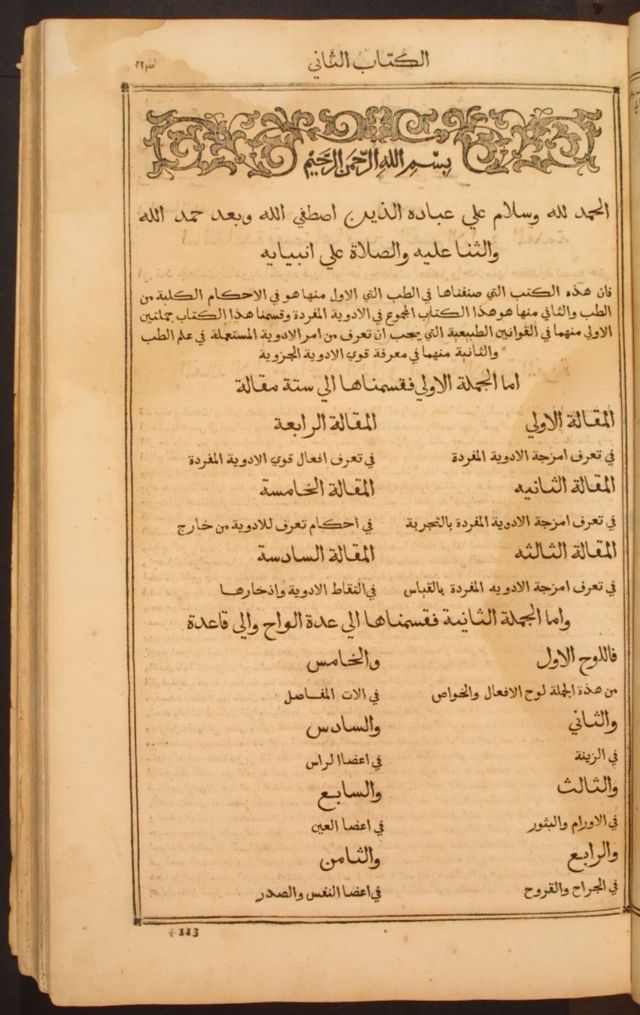 الكتاب الثاني
بسم الله الرحمن الرحيم
الحمد لله وسلام علي عباده الذين اصطفي الله وبعد حمد الله
والثنا عليه والصلاة علي انبيايه
فان هذه الكتب التي صنفناها في الطب التي الاول منها هو في الاحكام الكلية من
الطب والثاني منها هو هذا الكتاب المجموع في الادوية المفردة وقسمنا هذا الكتاب جملتين
الاولي منهما في القوانين الطبيعية التي يجب ان تعرف من امر الادوية المستعملة في علم الطب
والثانية منهما في معرفة قوي الادوية الجزوية
اما الجملة الاولي فقسمناها الي ستة مقالة
المقالة الاولي
في تعرف امزجة الادوية المفردة
المقالة الثانيه
في تعرف امزجة الادوية المفردة بالتجربة
المقالة الثالثه
في تعرف امزجة الادويه المفردة بالقياس
المقالة الرابعة
في تعرف افعال قوي الادوية المفردة
المقالة الخامسة
في احكام تعرف للادوية من خارج
المقالة السادسة
في التقاط الادوية واذخارها
واما الجملة الثانية فقسمناها الي عدة الواح والي قاعدة
فاللوح الاول
من هذة الجملة لوح الافعال والخواص
والثاني
في الزينة
والثالث
في الاورام والبثور
والرابع
في الجراح والقروح
والخامس
في الات المفاصل
والسادس
في اعضاا لراس
والسابع
في اعضا العين
والثامن
في اعضا النفس والصدر
113